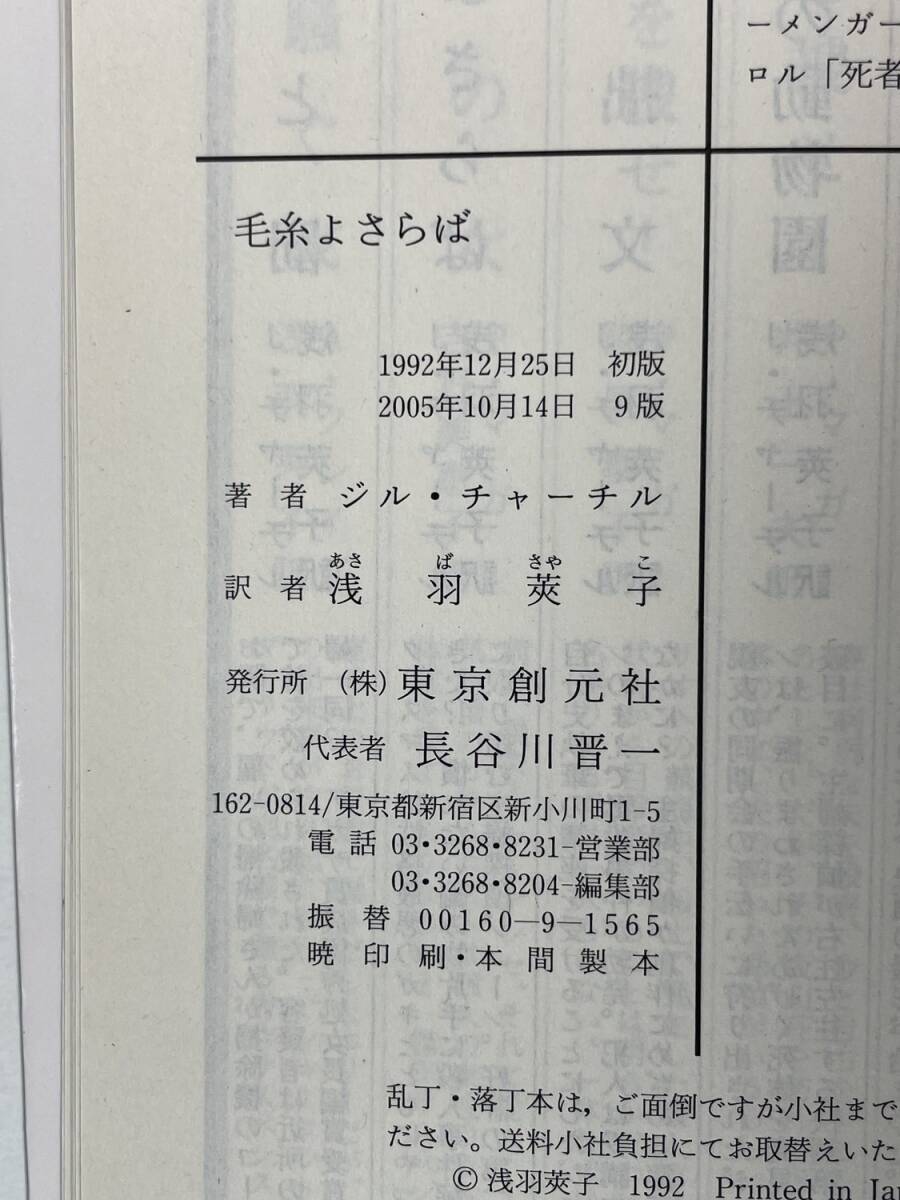 ーメンガー
ロル「死者
毛糸よさらば
1992年12月25日 初版
2005年10月14日 9版
著者 ジル・チャーチル
訳者 浅羽莢子
あさ ば さや こ
発行所 (株)東京創元社
代表者 長谷川晋一
162-0814/東京都新宿区新小川町1-5
電話 03・3268・8231-営業部
03・3268・8204-編集部
振替 00160-9-1565
暁印刷・本間製本
乱丁・落丁本は，ご面倒ですが小社まで
ださい。送料小社負担にてお取替えいた
©浅羽莢子 1992 Printed in Ja